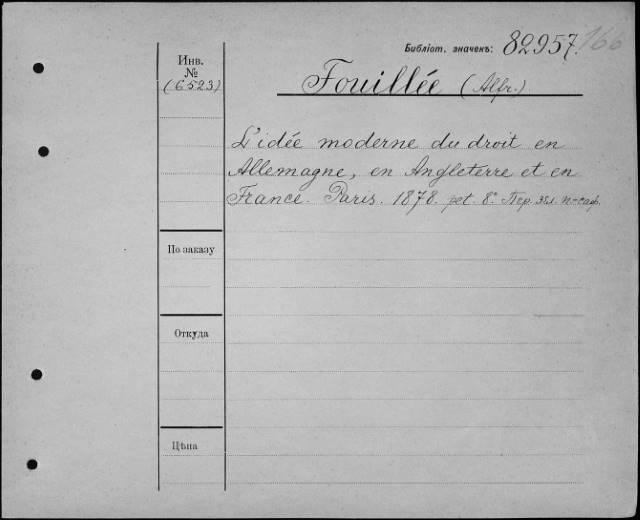 Библіот. значенъ: 82957. 166
Инв.
№
(6523)
Fouillée (Alfr.)
L'idée moderne du droit en
Allemagne, en Angleterre et en
France. Paris. 1878. pet. 8° Пер.
По заказу
Откуда
Цѣна